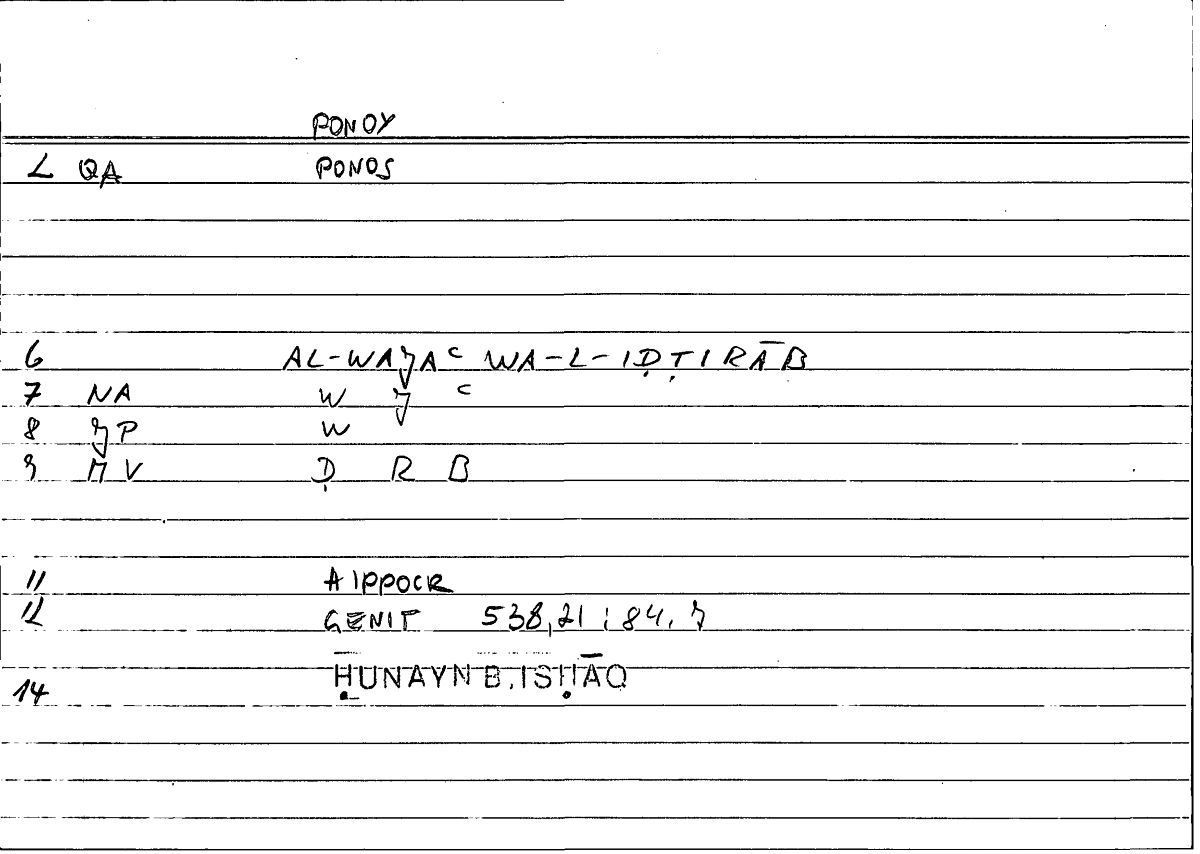 PONOY
2 QA PONOS
6 AL-WAJAC WA-L-IḌṬIRĀB
7 NA W J C
8 JP W
9 MV Ḍ R B
11 HIPPOCR
12 GENIT 538,21 ; 84, 9
ḤUNAYN B. ISḤĀQ
14